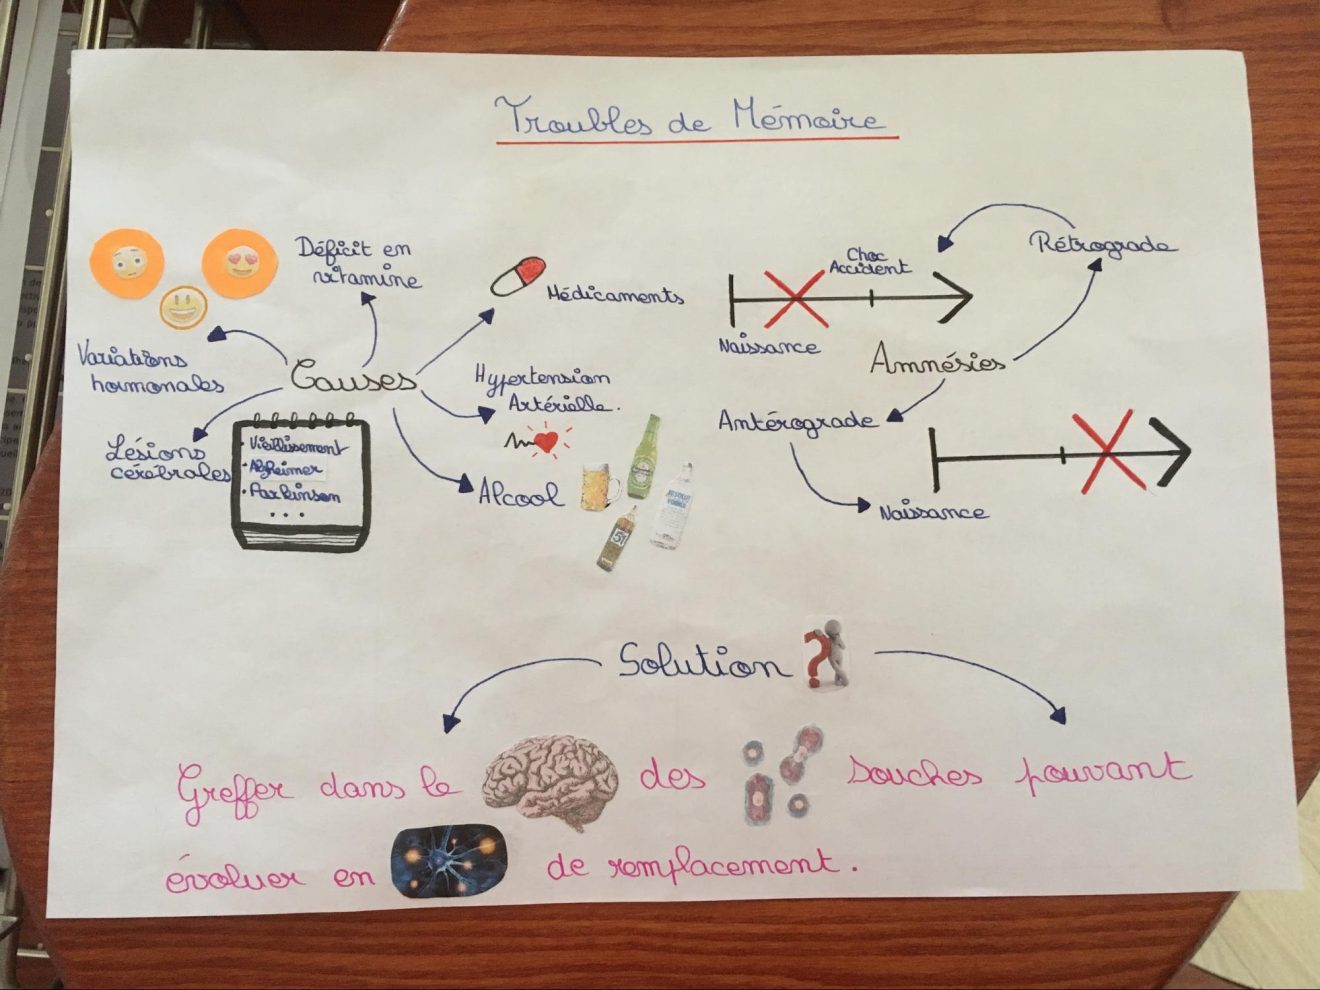 Troubles de Mémoire
Déficit en
vitamine
Variations
hormonales
Causes
Médicaments
Hypertension
Artérielle.
Lésions
cérébrales
• Vieillissement
• Alzheimer
• Parkinson
...
Alcool
51
ABSOLUT
VODKA
Rétrograde
Choc
Accident
Naissance
Amnésies
Antérograde
Naissance
Solution ?
Greffer dans le des souches pouvant
évoluer en de remplacement.